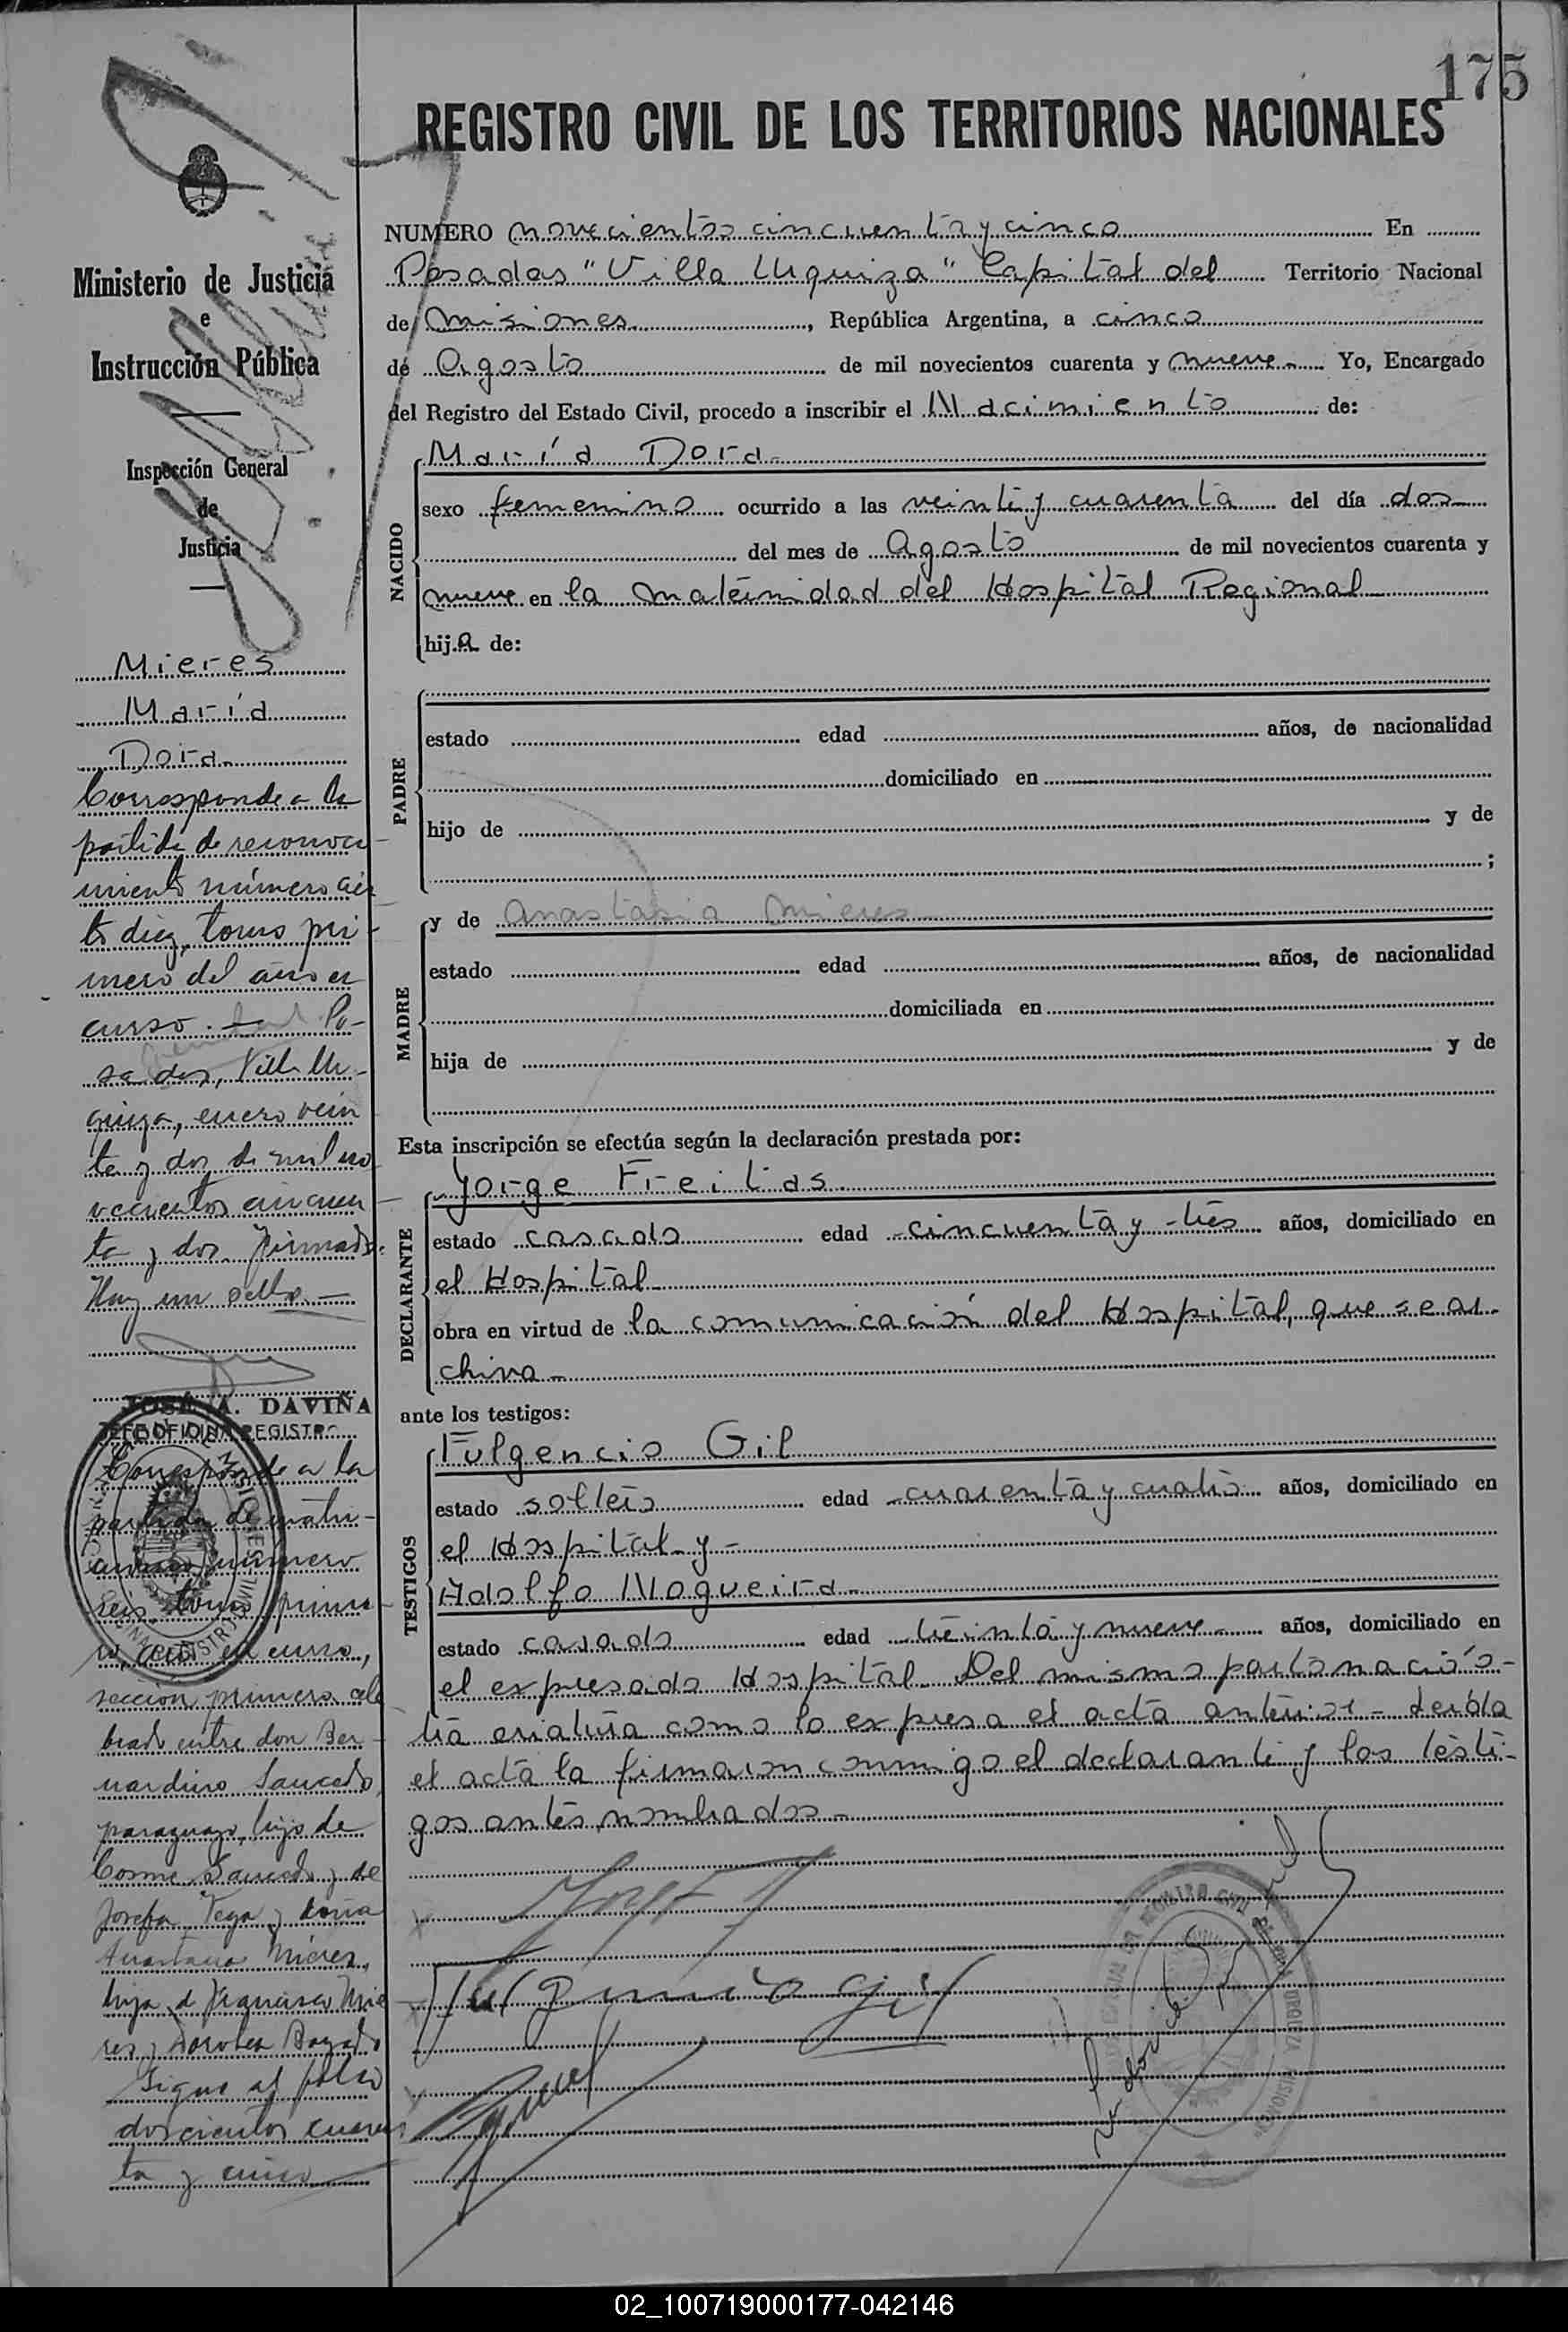 175
REGISTRO CIVIL DE LOS TERRITORIOS NACIONALES
Ministerio de Justicia
e
Instrucción Pública
Inspección General
de
Justicia
Mieres
María
Dora.
Corresponde a la
partida de reconoci-
miento número cien
to diez, tomo pri-
mero del año en
curso. - Po-
sadas, Villa Ur-
quiza, enero vein
te y dos de mil no
vecientos cincuen
ta y dos. Firmado.
Hay un sello. -
JOSÉ A. DAVIÑA
JEFE OFICINA REGISTRO
Corresponde a la
partida de matri-
monio número
seis, tomo prime-
ro, año en curso,
sección primera cele
brado entre don Ber-
nardino Saucedo,
paraguayo, hijo de
Cosme Saucedo y de
Josefa Vega y doña
Anastacia Mieres,
hija de Francisco Mie
res y Dorotea
Sigue al folio
doscientos cuaren
ta y cinco
NUMERO novecientos cincuenta y cinco En
Posadas "Villa Urquiza" Capital del Territorio Nacional
de Misiones, República Argentina, a cinco
de Agosto de mil novecientos cuarenta y nueve. Yo, Encargado
del Registro del Estado Civil, procedo a inscribir el Nacimiento de:
NACIDO
María Dora.
sexo femenino ocurrido a las veinte y cuarenta del día dos
del mes de Agosto de mil novecientos cuarenta y
nueve en la maternidad del Hospital Regional
hija de:
PADRE
estado edad años, de nacionalidad
domiciliado en
hijo de y de
;
MADRE
y de Anastasia Mieres
estado edad años, de nacionalidad
domiciliada en
hija de y de
Esta inscripción se efectúa según la declaración prestada por:
DECLARANTE
Jorge Freitas
estado casado edad cincuenta y tres años, domiciliado en
el Hospital
obra en virtud de la comunicación del Hospital, que se ar-
chiva-
ante los testigos:
TESTIGOS
Fulgencio Gil
estado soltero edad cuarenta y cuatro años, domiciliado en
el Hospital y -
Adolfo Nogueira
estado casado edad treinta y nueve años, domiciliado en
el expresado Hospital. Del mismo parto nació o-
tra criatura como lo expresa el acta anterior - Leída
el acta la firmaron conmigo el declarante y los testi-
gos antes nombrados -
Fulgencio Gil
02_100719000177-042146